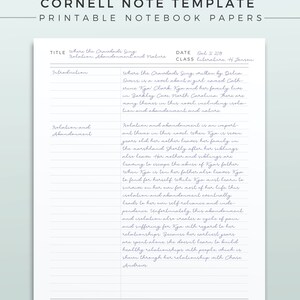 CORNELL NOTE TEMPLATE
PRINTABLE NOTEBOOK PAPERS
TITLE Where the Crawdads Sing
Isolation, Abandonment and Nature
DATE
CLASS Literature
Introduction
Where the Crawdads Sing written by Delia
Owens is a novel about a girl named Cath-
erine Kya Clark. Kya and her family live
in Barkley Cove North Carolina. There are
many themes in this novel including isola-
tion and abandonment and nature.
Isolation and
Abandonment
Isolation and abandonment is an import-
ant theme in this novel. When Kya is seven
years old her mother leaves her family in
the marshland. Shortly after her siblings
also leave. Her mother and siblings are
leaving to escape the abuse of Kya's father.
When Kya is ten her father also leaves Kya
to fend for herself. While Kya will learn to
survive on her own for most of her life this
isolation and abandonment eventually
leads to her own self reliance and inde-
pendence. Unfortunately, this abandonment
and isolation also creates a cycle of years
and suffering for Kya with regard to her
relationships. Because her earliest years
are spent alone she doesn't learn to build
healthy relationships with people which is
shown through her relationship with Chase
Andrews.